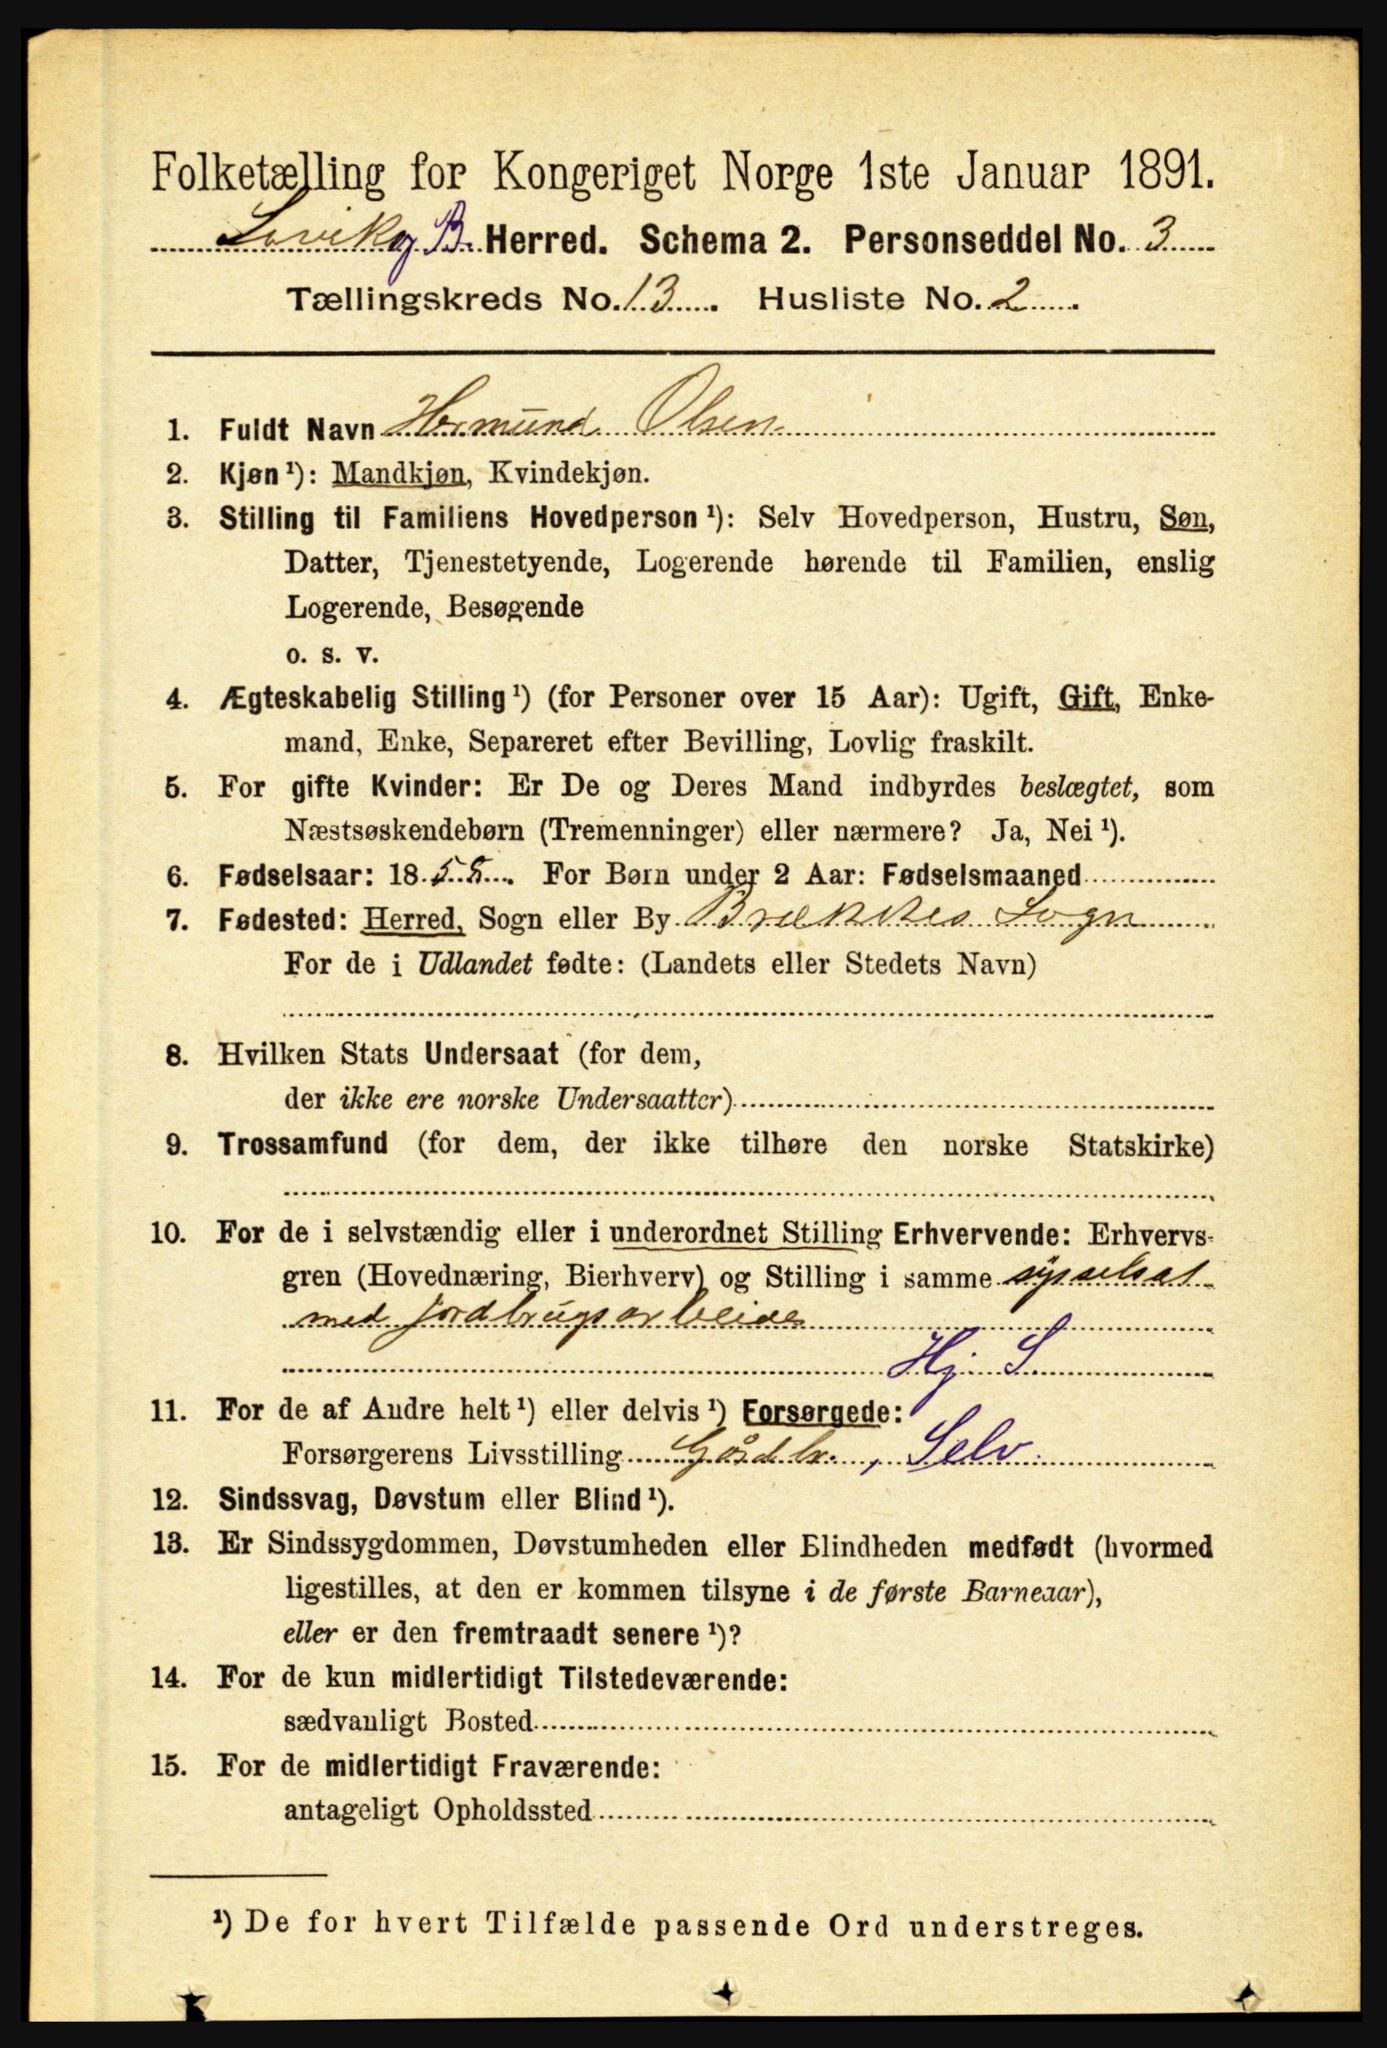 Folketælling for Kongeriget Norge 1ste Januar 1891.
Lavik og B. Herred. Schema 2. Personseddel No. 3
Tællingskreds No. 13. Husliste No. 2.
1. Fuldt Navn Hermund Olsen
2. Kjøn ¹): Mandkjøn, Kvindekjøn.
3. Stilling til Familiens Hovedperson ¹): Selv Hovedperson, Hustru, Søn,
Datter, Tjenestetyende, Logerende hørende til Familien, enslig
Logerende, Besøgende
o. s. v.
4. Ægteskabelig Stilling ¹) (for Personer over 15 Aar): Ugift, Gift, Enke-
mand, Enke, Separeret efter Bevilling, Lovlig fraskilt.
5. For gifte Kvinder: Er De og Deres Mand indbyrdes beslægtet, som
Næstsøskendebørn (Tremenninger) eller nærmere? Ja, Nei ¹).
6. Fødselsaar: 1855. For Børn under 2 Aar: Fødselsmaaned
7. Fødested: Herred, Sogn eller By Brækkes Sogn
For de i Udlandet fødte: (Landets eller Stedets Navn)
8. Hvilken Stats Undersaat (for dem,
der ikke ere norske Undersaatter)
9. Trossamfund (for dem, der ikke tilhøre den norske Statskirke)
10. For de i selvstændig eller i underordnet Stilling Erhvervende: Erhvervs-
gren (Hovednæring, Bierhverv) og Stilling i samme sysselsat
med jordbrugsarbeide
Hj. S
11. For de af Andre helt ¹) eller delvis ¹) Forsørgede:
Forsørgerens Livsstilling Gårdbr., Selv.
12. Sindssvag, Døvstum eller Blind ¹).
13. Er Sindssygdommen, Døvstumheden eller Blindheden medfødt (hvormed
ligestilles, at den er kommen tilsyne i de første Barneaar),
eller er den fremtraadt senere ¹)?
14. For de kun midlertidigt Tilstedeværende:
sædvanligt Bosted
15. For de midlertidigt Fraværende:
antageligt Opholdssted
¹) De for hvert Tilfælde passende Ord understreges.